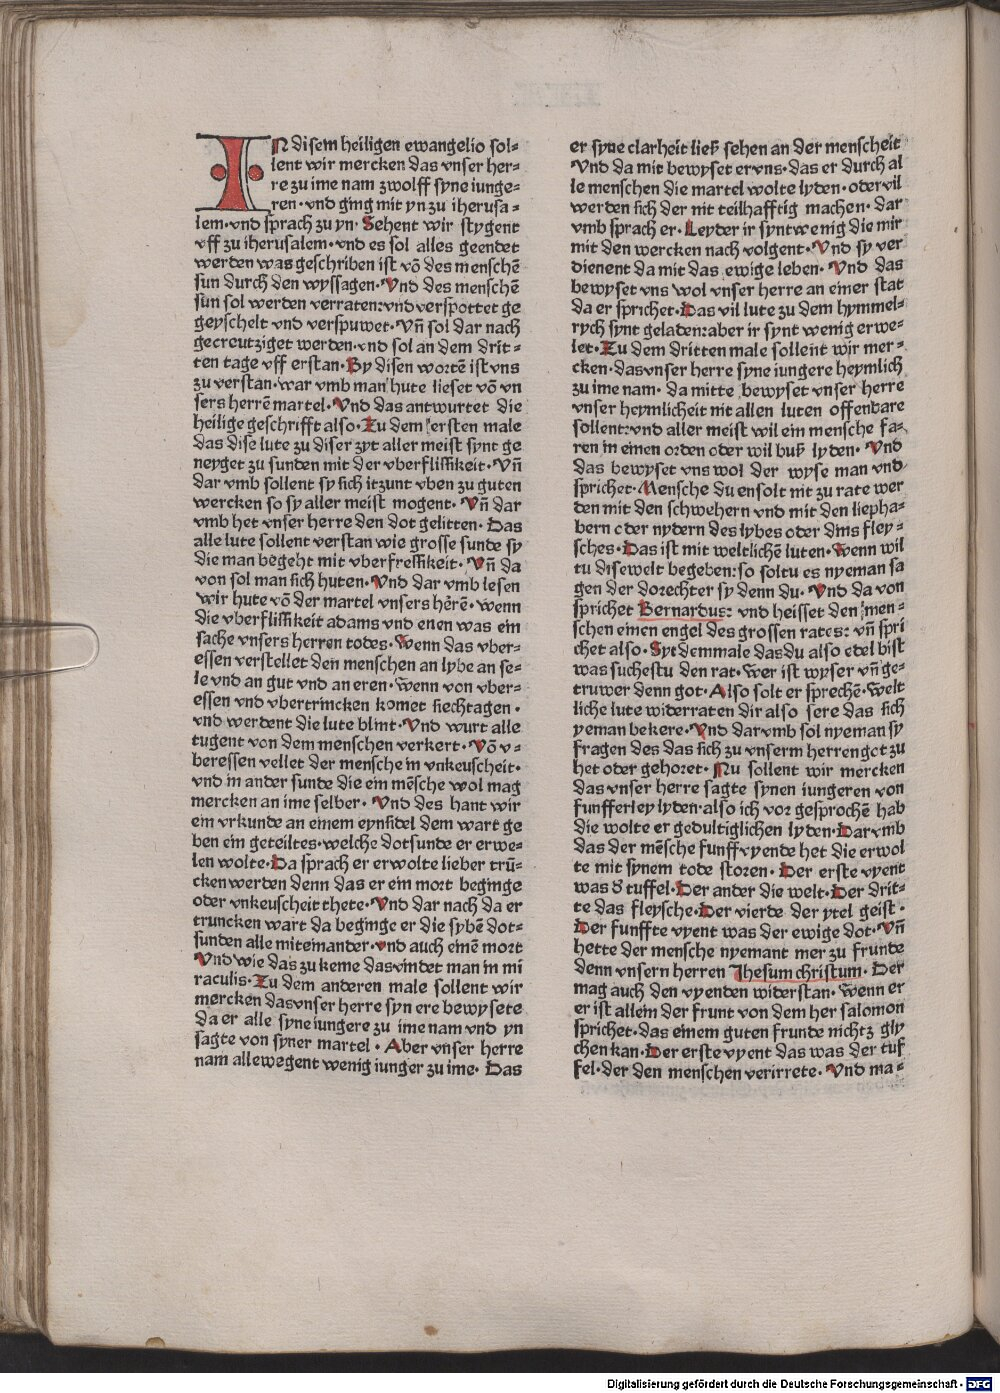 IN disem heiligen ewangelio sol-
lent wir mercken das vnser her-
re zu ime nam zwolff syne iunge-
ren · vnd ging mit yn zu iherusa-
lem · vnd sprach zu yn · Sehent wir stygent
vff zu iherusalem · vnd es sol alles geendet
werden was geschriben ist võ des menschẽ
sun durch den wyssagen · Vnd des menschẽ
sun sol werden verraten: vnd verspottet ge
geyschelt vnd verspuwet · Vñ sol dar nach
gecreutziget werden · vnd sol an dem drit-
ten tage vff erstan · By disen wortẽ ist vns
zu verstan · war vmb man hute lieset võ vn
sers herrẽ martel · Vnd das antwurtet die
heilige geschrifft also · Zu dem ersten male
das dise lute zu diser zyt aller meist synt ge
neyget zu sunden mit der vberflissikeit · Vñ
dar vmb sollent sy sich itzunt vben zu guten
wercken so sy aller meist mogent · Vñ dar
vmb het vnser herre den dot gelitten · Das
alle lute sollent verstan wie grosse sunde sy
die man begeht mit vberfressikeit · Vñ da
von sol man sich huten · Vnd dar vmb lesen
wir hute võ der martel vnsers hẽrẽ · wenn
die vberflissikeit adams vnd euen was ein
sache vnsers herren todes · Wenn das vber-
essen verstellet den menschen an lybe an se-
le vnd an gut vnd an eren · Wenn von vber-
essen vnd vbertrincken komet siechtagen ·
vnd werdent die lute blint · Vnd wurt alle
tugent von dem menschen verkert · Võ v-
beressen vellet der mensche in vnkeuscheit ·
vnd in ander sunde die ein mẽsche wol mag
mercken an ime selber · Vnd des hant wir
ein vrkunde an einem eynsidel dem wart ge
ben ein geteiltes · welche dotsunde er erwe-
len wolte · Da sprach er er wolte lieber trũ-
cken werden denn das er ein mort beginge
oder vnkeuscheit thete · Vnd dar nach da er
truncken wart da beginge er die sybẽ dot-
sunden alle miteinander · vnd auch einẽ mort
Vnd wie das zu keme das vindet man in mi
raculis · Zu dem anderen male sollent wir
mercken das vnser herre syn ere bewysete
da er alle syne iungere zu ime nam vnd yn
sagte von syner martel · Aber vnser herre
nam allewegent wenig iunger zu ime · Das
er syne clarheit ließ sehen an der menscheit
Vnd da mit bewyset er vns · das er durch al
le menschen die martel wolte lyden · oder vil
werden sich der nit teilhafftig machen · dar
vmb sprach er · Leyder ir synt wenig die mir
mit den wercken nach volgent · Vnd sy ver
dienent da mit das ewige leben · Vnd das
bewyset vns wol vnser herre an einer stat
da er sprichet · Das vil lute zu dem hymmel-
rych synt geladen: aber ir synt wenig erwe-
let · Zu dem dritten male sollent wir mer-
cken · das vnser herre syne iungere heymlich
zu ime nam · da mitte bewyset vnser herre
vnser heymlicheit nit allen luten offenbare
sollent: vnd aller meist wil ein mensche fa-
ren in einen orden oder wil buß lyden · Vnd
das bewyset vns wol der wyse man vnd
sprichet · Mensche du ensolt nit zu rate wer
den mit den schwehern vnd mit den liepha-
bern oder nydern des lybes oder dins fley-
sches · Das ist mit weltlichẽ luten · Wenn wil
tu dise welt begeben: so soltu es nyeman sa
gen der dorechter sy denn du · Vnd da von
sprichet Bernardus: vnd heisset den men-
schen einen engel des grossen rates: vñ spri
chet also · Syt demmale das du also edel bist
was suchestu den rat · Wer ist wyser vñ ge-
truwer denn got · Also solt er sprechẽ · Welt
liche lute widerraten dir also sere das sich
yeman bekere · Vnd darvmb sol nyeman sy
fragen des das sich zu vnserm herren got zu
het oder gehoret · Nu sollent wir mercken
das vnser herre sagte synen iungeren von
funfferley lyden · also ich vor gesprochẽ hab
die wolte er gedultiglichen lyden · Darvmb
das der mẽsche funff vyende het die er wol
te mit synem tode storen · Der erste vyent
was d̾ tuffel · Der ander die welt · Der drit-
te das fleysche · Der vierde der ytel geist ·
Der funffte vyent was der ewige dot · Vñ
hette der mensche nyemant mer zu frunde
denn vnsern herren Jhesum christum · Der
mag auch den vyenden widerstan · Wenn er
er ist allein der frunt von dem her salomon
sprichet · das einem guten frunde nichtz gly
chen kan · Der erste vyent das was der tuf
fel · der den menschen verirrete · Vnd ma-
Digitalisierung gefördert durch die Deutsche Forschungsgemeinschaft - DFG